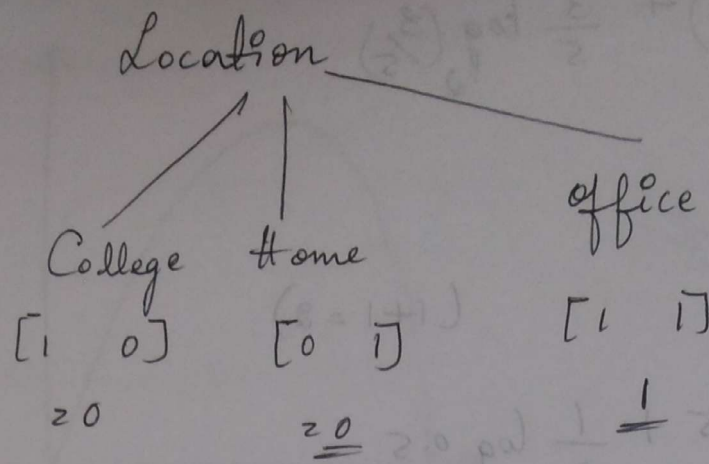 Location
College Home office
[1 0] [0 1] [1 1]
= 0 = 0 1